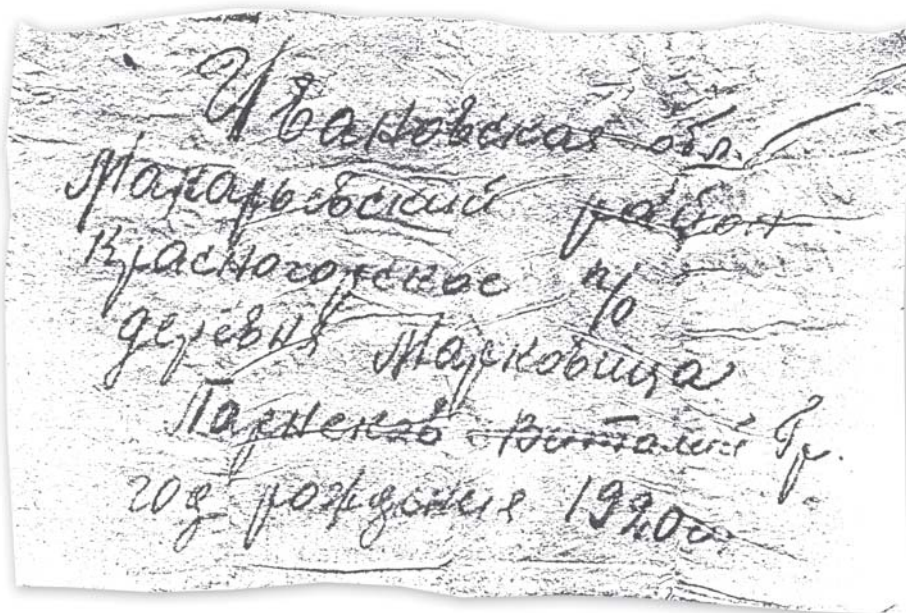 Ивановская обл.
Макарьевский район
Красногорское п/о
деревня Марковица
Парнсков Виталий Гр.
год рождения 1920г.